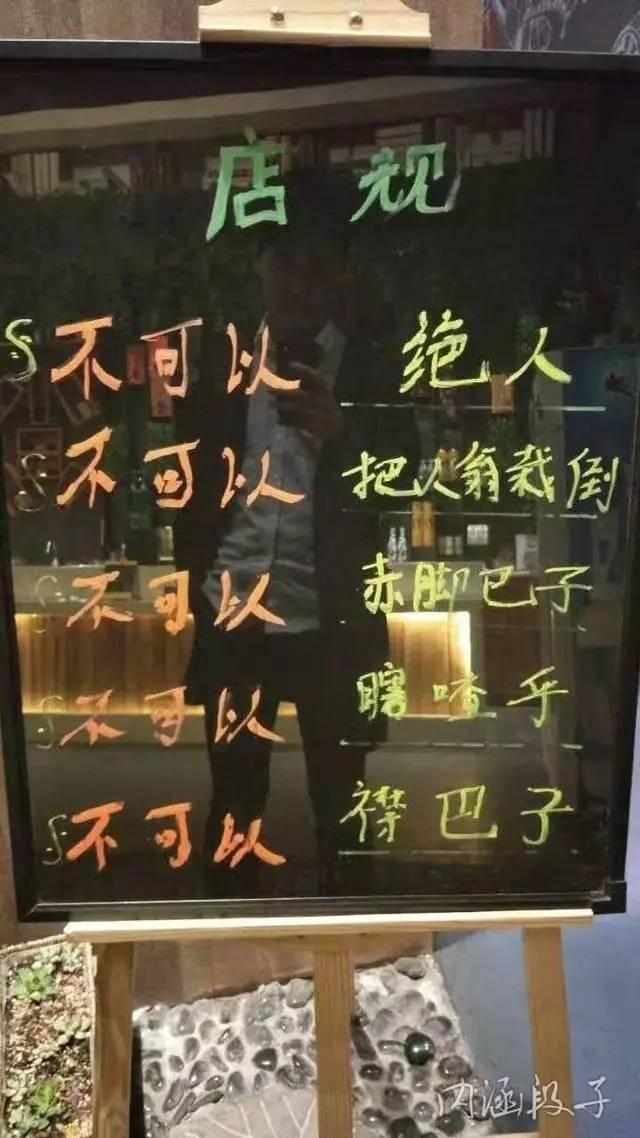 店规
不可以 绝人
不可以 把人翁栽倒
不可以 赤脚巴子
不可以 瞎喳乎
不可以 襟巴子
内涵段子